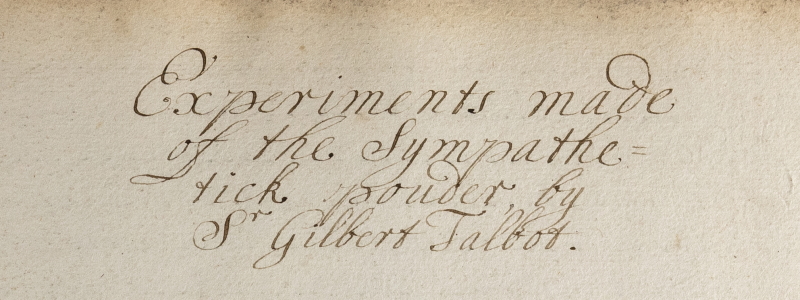 Experiments made
of the Sympathe=
tick pouder, by
Sr Gilbert Talbot.